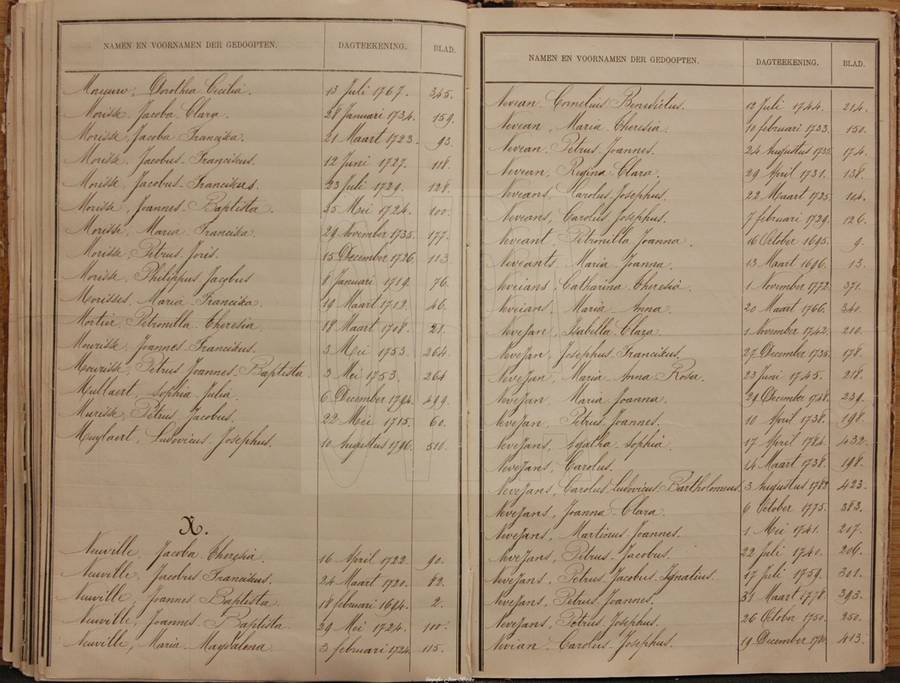 NAMEN EN VOORNAMEN DER GEDOOPTEN. DAGTEEKENING. BLAD.
Dorothea Cecilia. 13 Juli 1767. 345.
Morisse, Jacoba Clara. 28 Januari 1734. 159.
Morisse, Jacoba Franciska. 21 Maart 1723. 93.
Morisse, Jacobus Franciskus. 12 Juni 1727. 118.
Morisse, Jacobus Franciskus. 23 Juli 1729. 128.
Morisse, Joannes Baptista. 25 Mei 1724. 100.
Morisse, Maria Franciska. 29 November 1735. 177.
Morisse, Petrus Joris. 15 December 1726. 113
Morisse, Philippus Jacobus 8 Januari 1719. 76.
Morisses, Maria Franciska. 19 Maart 1712. 46.
Mortier, Petronilla Theresia 18 Maart 1708. 28.
Mourisse, Joannes Franciskus. 3 Mei 1753. 264.
Mourisse, Petrus Joannes Baptista. 3 Mei 1753. 264
Mullaert, Sophia Julia. 6 December 1794. 499.
Murisse, Petrus Jacobus. 22 Mei 1715. 60.
Muylaert, Ludovicus Josephus. 10 Augustus 1796. 510.
N.
Neuville, Jacoba Theresia. 16 April 1722. 90.
Neuville, Jacobus Franciscus. 24 Maart 1720. 82.
Neuville, Joannes Baptista. 18 februari 1694. 2.
Neuville, Joannes Baptista 29 Mei 1724. 100.
Neuville, Maria Magdalena 3 februari 1724. 115.
NAMEN EN VOORNAMEN DER GEDOOPTEN. DAGTEEKENING. BLAD.
Nevean, Cornelius Benedictus. 12 Juli 1744. 214.
Nevean, Maria Theresia. 10 februari 1733. 150.
Nevean, Petrus Joannes. 24 Augustus 1735. 174.
Nevean, Regina Clara. 29 April 1731. 138.
Neveans, Carolus Josephus. 22 Maart 1725. 104.
Neveans, Carolus Josephus. 7 februari 1729. 126.
Neveant, Petronilla Joanna. 16 October 1695. 9.
Neveants, Maria Joanna. 13 Maart 1696. 13.
Neveians, Catharina Theresia. 1 November 1772. 371.
Neveians, Maria Anna. 20 Maart 1766. 340.
Nevejan, Isabella Clara. 1 November 1742. 210.
Nevejan, Josephus Franciskus. 27 December 1735. 178.
Nevejan, Maria Anna Rosa. 23 Juni 1745. 218.
Nevejan, Maria Joanna. 29 December 1748. 239.
Nevejan, Petrus Joannes. 10 April 1738. 198.
Nevejans, Agatha Sophia. 17 April 1784. 432.
Nevejans, Carolus. 14 Maart 1738. 198.
Nevejans, Carolus Ludovicus Bartholomeus. 3 Augustus 1782. 423.
Nevejans, Joanna Clara. 6 October 1775. 383.
Nevejans, Martinus Joannes. 1 Mei 1741. 207.
Nevejans, Petrus Jacobus. 22 Juli 1740. 206.
Nevejans, Petrus Jacobus Ignatius. 17 Juli 1759. 301.
Nevejans, Petrus Joannes. 31 Maart 1778. 393.
Nevejans, Petrus Josephus. 26 October 1750. 250.
Nevian, Carolus Josephus. 19 December 413.